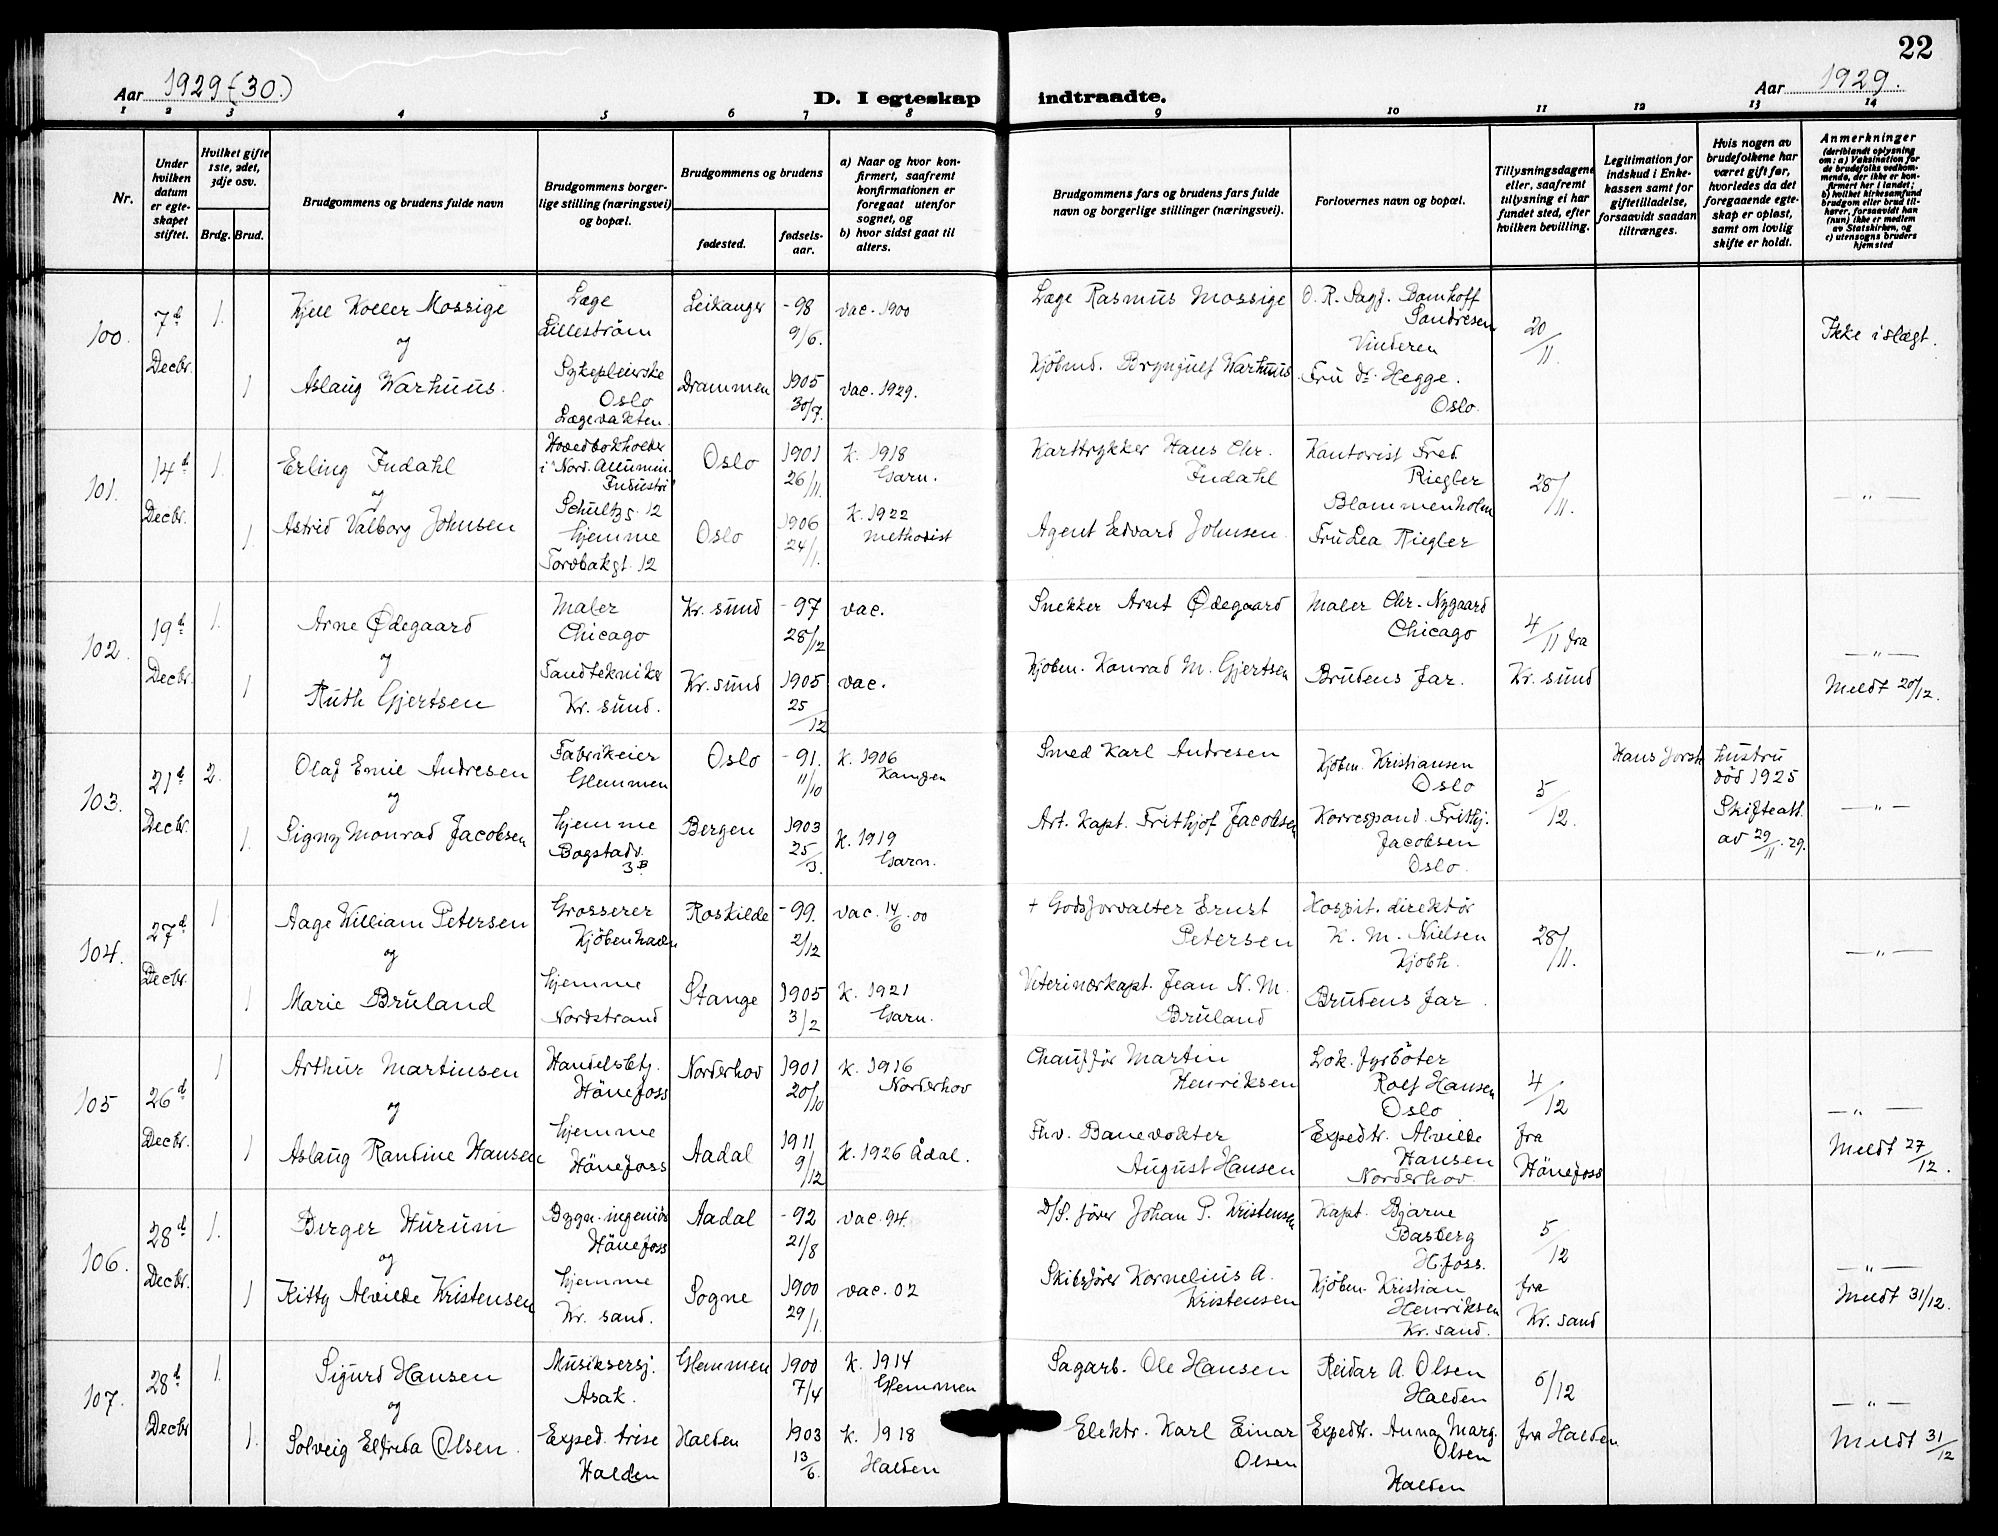 22
Aar 1929(-30.)
D. I egteskap indtraadte.
Aar 1929.
1 2 3 4 5 6 7 8 9 10 11 12 13 14
Nr.
Under hvilken datum er egteskapet stiftet.
Hvilket gifte 1ste, 2det, 3dje osv.
Brdg. Brud.
Brudgommens og brudens fulde navn
Brudgommens borgerlige stilling (næringsvei) og bopæl.
Brudgommens og brudens
fødested.
fødselsaar.
a) Naar og hvor konfirmert, saafremt konfirmationen er foregaat utenfor sognet, og
b) hvor sidst gaat til alters.
Brudgommens fars og brudens fars fulde navn og borgerlige stillinger (næringsvei).
Forlovernes navn og bopæl.
Tillysningsdagene eller, saafremt tillysning ei har fundet sted, efter hvilken bevilling.
Legitimation for indskud i Enkekassen samt for giftetilladelse, forsaavidt saadan tiltrænges.
Hvis nogen av brudefolkene har været gift før, hvorledes da det foregaaende egteskap er opløst, samt om lovlig skifte er holdt.
Anmerkninger
(deriblandt oplysning om: a) Vaksination for de brudefolks vedkommende, der ikke er konfirmert her i landet; b) hvilket kirkesamfund brudgom eller brud tilhører, forsaavidt han (hun) ikke er medlem av Statskirken, og c) utensogns bruders hjemsted
100. 7d Decbr. 1.
Kjell Koller Mossige
Læge
Lilleström
Leikanger
-98
9/6.
vac. 1900
Læge Rasmus Mossige
O. R. Sagf. Bomhoff
Sandresen
Vinderen
20/11.
Ikke i slægt.
og
1
Aslaug Warhuus.
Sykepleierske
Oslo
Lægevakten
Drammen
1905
30/7.
vac. 1929.
Kjöbmd. Brynjulf Warhuus
Fru Dr. Hegge.
Oslo.
101. 14d Decbr. 1.
Erling Indahl
Hovedbokholder
i Nord. Allumin.
Industri
Schultzg. 12
Oslo
1901
26/11.
K. 1918
Garn.
Karttrykker Hans Chr.
Indahl
Kontorist Fred
Riegler
Blommenholm
28/11.
— „ —
og
1.
Astrid Valborg Johnsen
hjemme
Torvbakgt. 12
Oslo
1906
24/1.
K. 1922
Methodist
Agent Edvard Johnsen
Fru Lea Riegler
102. 19d Decbr. 1.
Arne Ødegaard
Maler
Chicago
Kr. sund
-97
28/12
vac.
Snekker Arnt Ødegaard
Maler Chr. Nygaard
Chicago
4/11 fra
Kr. sund
— „ —
Meldt 20/12.
og
1
Ruth Gjertsen
Tandtekniker
Kr. sund.
Kr. sund
1905
25/12
vac.
Kjöbm. Konrad M. Gjertsen
Brudens far.
103. 21d Decbr. 2.
Olaf Emil Andresen
Fabrikeier
Glemmen
Oslo
-91.
11/10
K. 1906
Kampen
Smed Karl Andresen
Kjöbm. Kristiansen
Oslo
5/12.
Hustru
död 1925
Skifteatt.
av 29/11.29.
— „ —
og
1.
Signy Monrad Jacobsen
hjemme
Bogstadv.
3B
Bergen
1903
25/3.
K. 1919
Garn.
Art. Kapt. Frithjof Jacobsen
Korrespond. Frithj.
Jacobsen
Oslo.
104. 27d Decbr. 1
Aage William Petersen
Grosserer
Kjöbenhavn
Roskilde
-99.
2/12
vac. 14/6.00
+ Godsforvalter Ernst
Petersen
Hospit. direktör
K. M. Nielsen
Kjöbh.
28/11.
— „ —
og
1
Marie Bruland
hjemme
Nordstrand
Stange
1905
3/2
K. 1921
Garn.
Veterinærkapt. Jean N. M.
Bruland
Brudens far.
105 26d Decbr. 1
Arthur Martinsen
Handelsbtj.
Hönefoss
Norderhov
1901
20/10
K. 1916
Norderhov
Chaufför Martin
Henriksen
Lok. fyrböter
Rolf Hansen
Oslo
4/12
fra
Hönefoss
— „ —
Meldt 27/12.
og
1
Aslaug Randine Hansen
hjemme
Hönefoss
Aadal
1911
9/12
K. 1926 Ådal.
Fhv. Banevokter
August Hansen
Expedtr. Alvilde
Hansen
Norderhov
106. 28d Decbr. 1.
Birger Hurum
Bygn. ingeniör
Hönefoss
Aadal
-92
21/8
vac. 94.
D/S. förer Johan P. Kristensen
Kapt. Bjarne
Basberg
H.foss.
5/12
fra
Kr. sand
— „ —
Meldt 31/12.
og
1
Kitty Alvilde Kristensen
hjemme
Kr. sand.
Sogne
1900
29/1.
vac. 02
Skibsförer Kornelius A.
Kristensen
Kjöbm. Kristian
Henriksen
Kr. sand.
107. 28d Decbr 1.
Sigurd Hansen
Musiksersj.
Asak.
Glemmen
1900
7/4
K. 1914
Glemmen
Sagarb. Ole Hansen
Reidar A. Olsen
Halden
6/12
fra Halden
— „ —
Meldt 31/12
og
1.
Solveig Elfrida Olsen.
Exped. trise
Halden
Halden
1903
13/6.
K. 1918
Halden
Elektr. Karl Einar
Olsen
Expedtr. Anna Marg.
Olsen
Halden